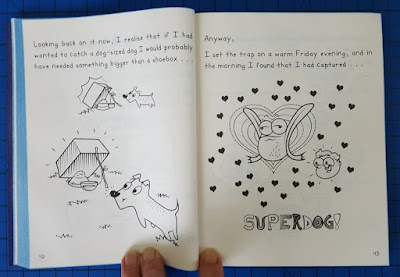 Looking back on it now, I realise that if I had
wanted to catch a dog-sized dog I would probably
have needed something bigger than a shoebox . . .
12
Anyway,
I set the trap on a warm Friday evening, and in
the morning I found that I had captured . . .
SUPERDOG!
13